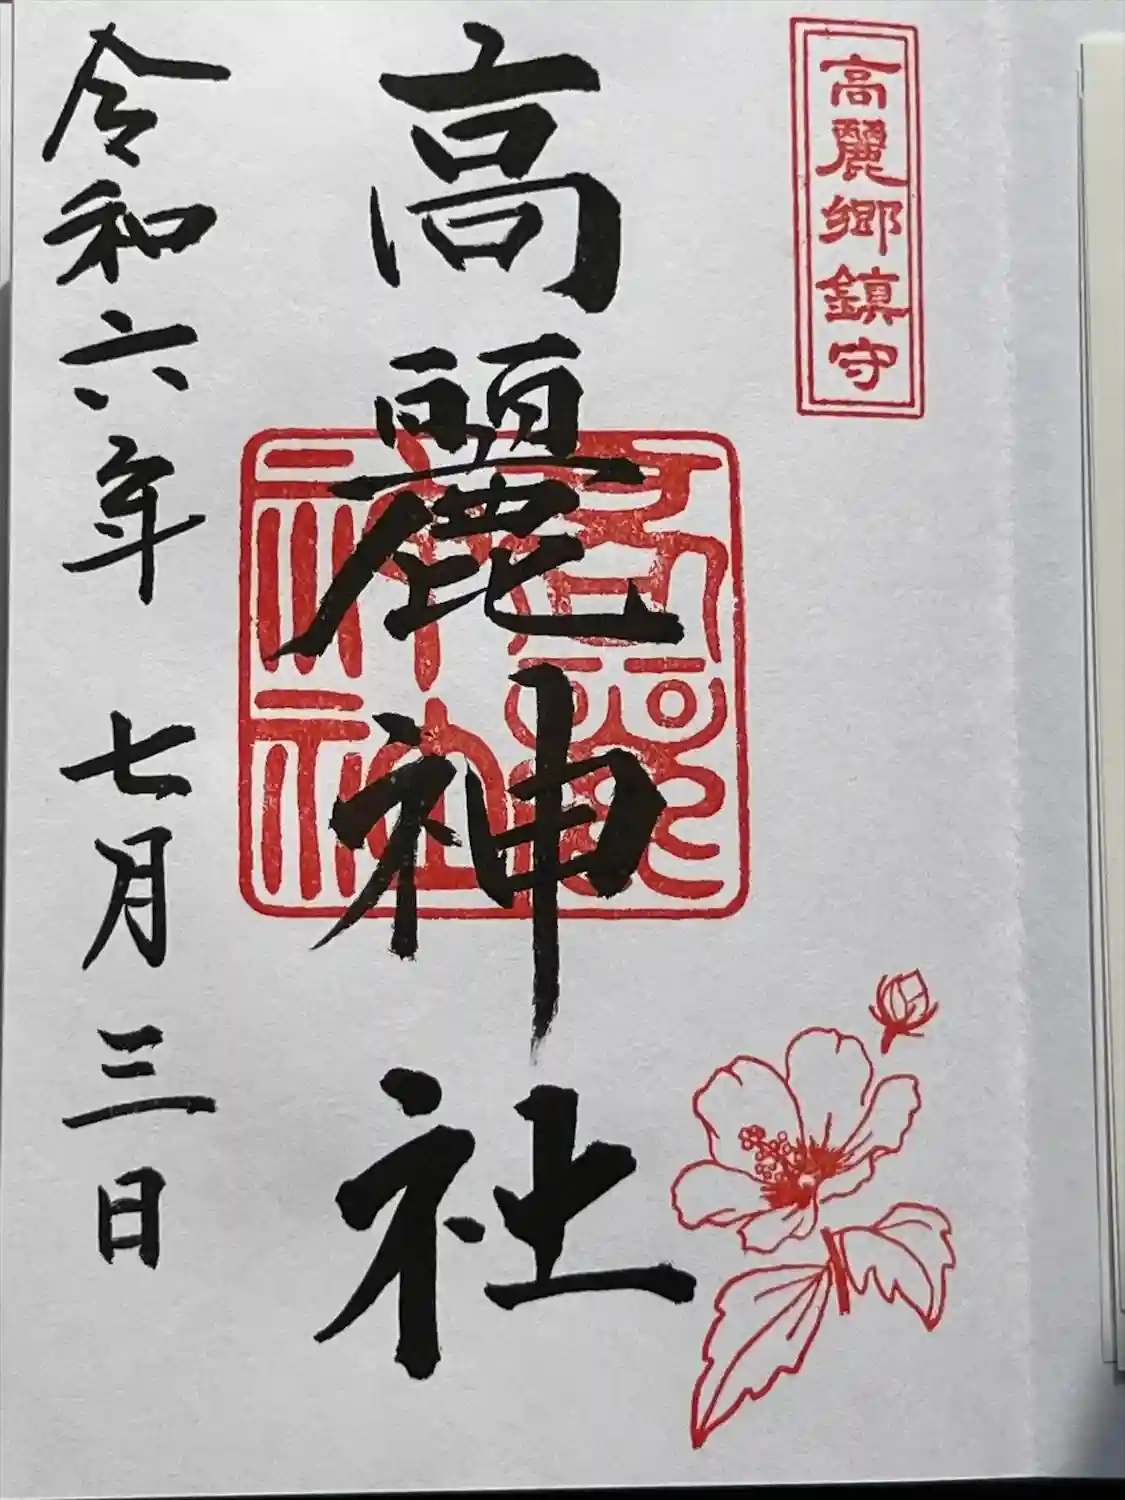 高麗郷鎮守
高麗神社
高麗
神社
令和六年 七月三日